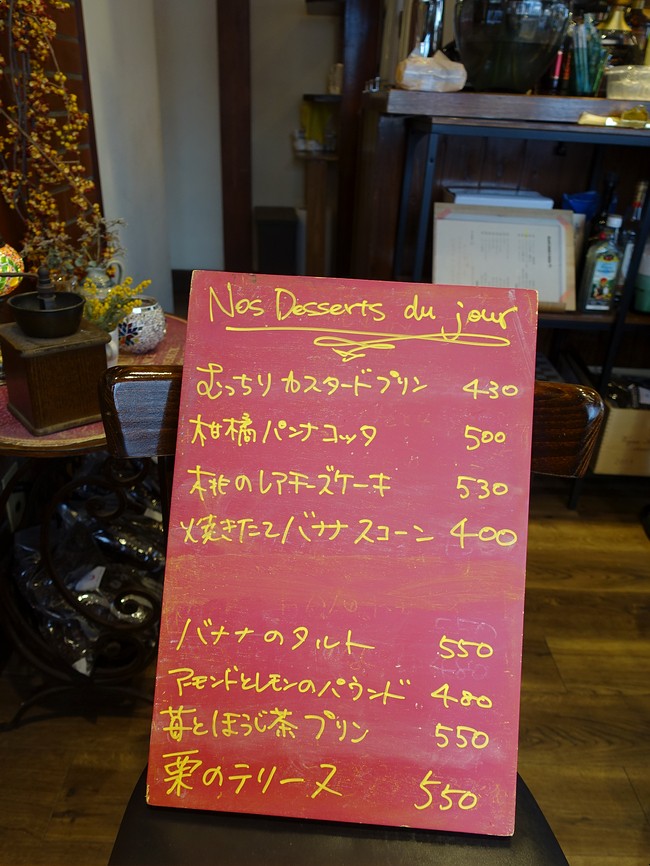 Nos Desserts du jour
むっちりカスタードプリン 430
柑橘パンナコッタ 500
桃のレアチーズケーキ 530
焼きたてバナナスコーン 400
バナナのタルト 550
アーモンドとレモンのパウンド 480
苺とほうじ茶プリン 550
栗のテリーヌ 550